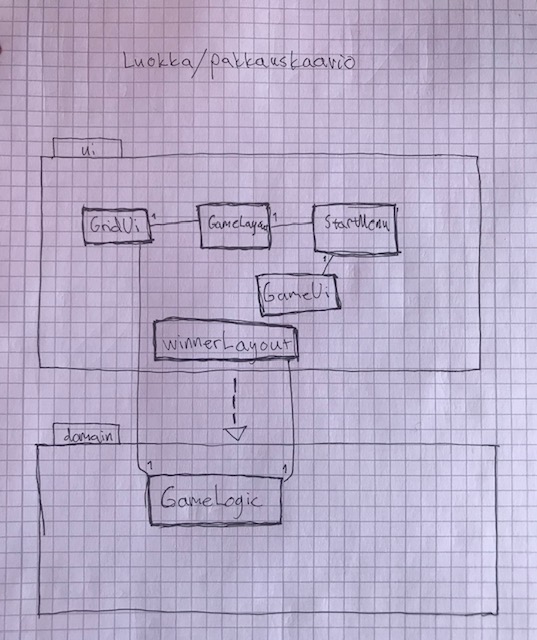 Luokka/pakkauskaavio
ui
GridUi
1
GameLayout
1
StartMenu
1
GameUi
winnerLayout
domain
1
1
GameLogic